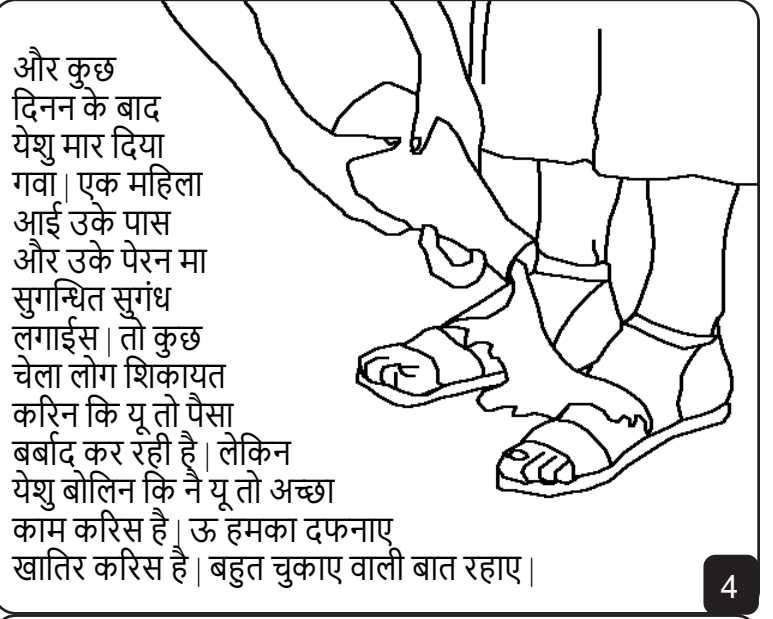 और कुछ
दिनन के बाद
येशु मार दिया
गवा | एक महिला
आई उके पास
और उके पेरन मा
सुगन्धित सुगंध
लगाईस | तो कुछ
चेला लोग शिकायत
करिन कि यू तो पैसा
बर्बाद कर रही है | लेकिन
येशु बोलिन कि नै यू तो अच्छा
काम करिस है | ऊ हमका दफनाए
खातिर करिस है | बहुत चुकाए वाली बात रहाए |
4